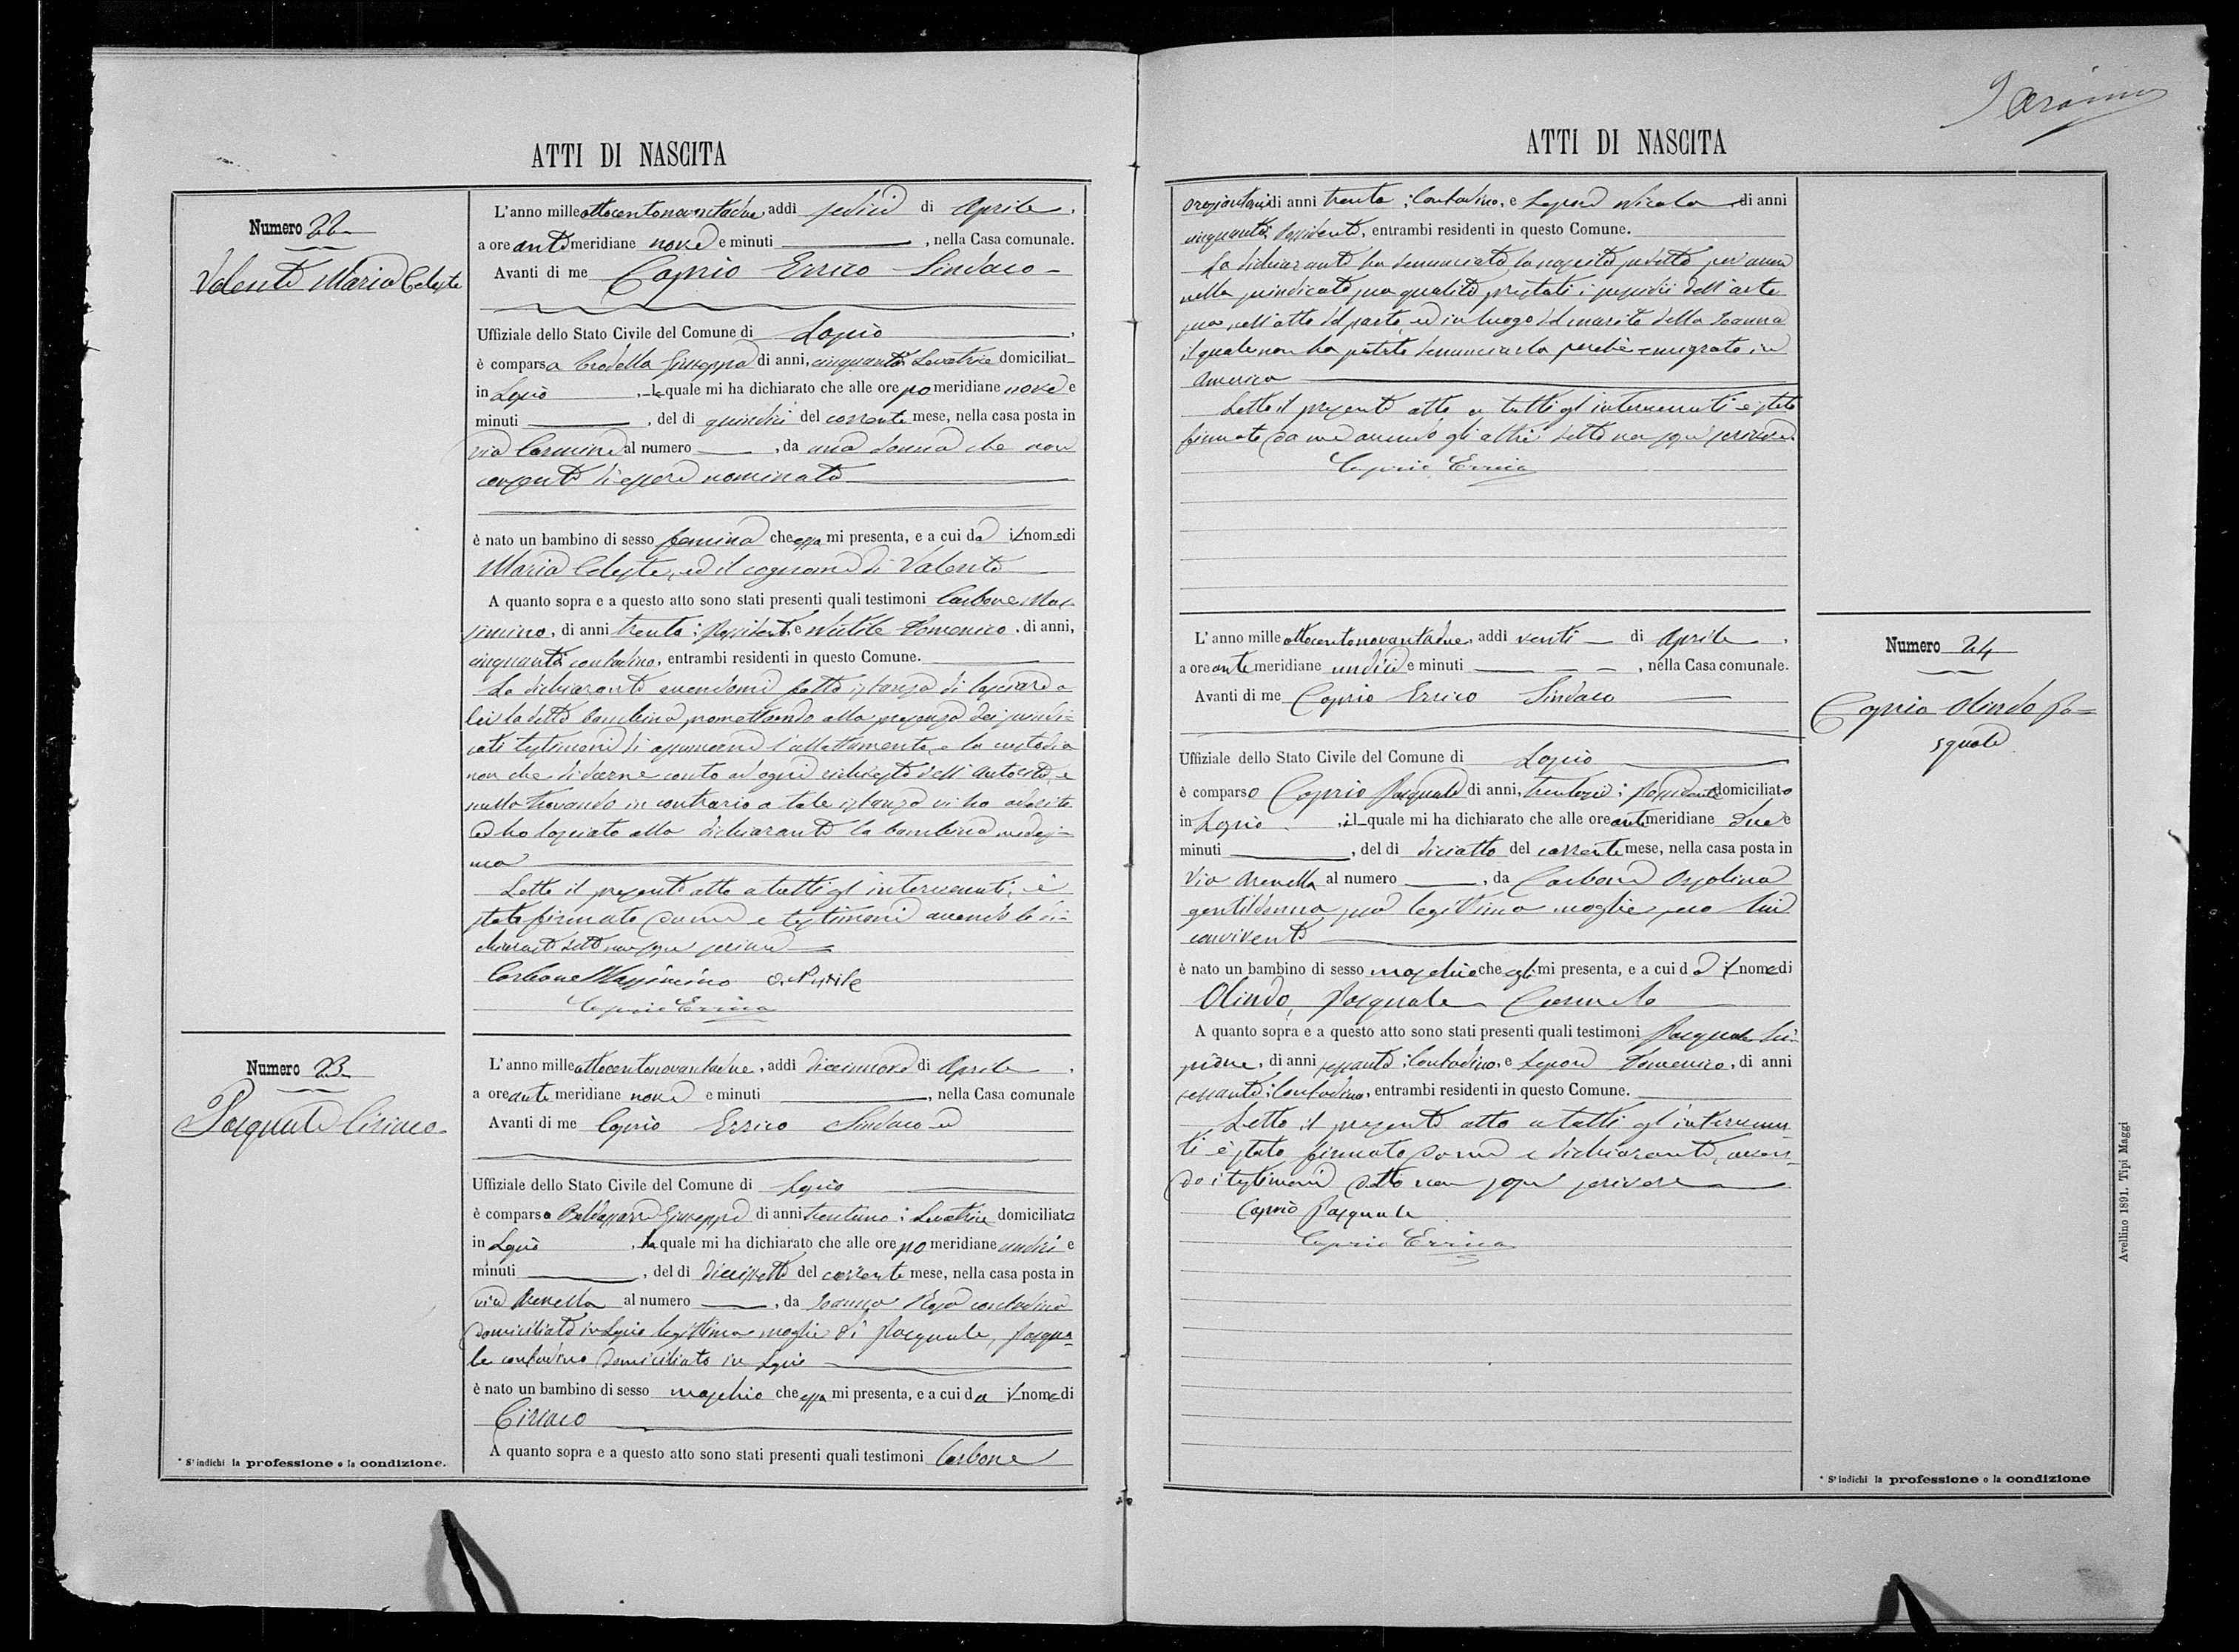 ATTI DI NASCITA
Numero 22
Valente Maria Celeste
L'anno milleottocentonovantadue, addì sedici di Aprile,
a ore antimeridiane nove e minuti , nella Casa comunale.
Avanti di me Caprio Errico Sindaco
Uffiziale dello Stato Civile del Comune di Lapio,
è comparsa Giuseppa di anni, cinquanta Levatrice domiciliat
in Lapio, la quale mi ha dichiarato che alle ore pomeridiane nove e
minuti , del dì quindici del corrente mese, nella casa posta in
via Carmine al numero , da una donna che non
consente di essere nominata
è nato un bambino di sesso femina che essa mi presenta, e a cui da il nome di
Maria Celeste, ed il cognome di Valente
A quanto sopra e a questo atto sono stati presenti quali testimoni Carbone Mas-
simino, di anni trenta; Possidente, e Nutile Domenico, di anni,
cinquanta contadino, entrambi residenti in questo Comune.
La dichiarante avendomi fatto istanza di lasciare a
lei la detta bambina, promettendo alla presenza dei suindi-
cati testimoni di assumerne l'allattamento e la custodia
non che di darne conto ad ogni richiesta dell'Autorità, e
nulla trovando in contrario a tale istanza vi ho aderito
ed ho lasciato alla dichiarante la bambina medesi-
ma
Letto il presente atto a tutti gl'intervenuti, è
stato firmato da me e testimoni avendo la di-
chiarante detto non saper scrivere
Carbone Massimino D. Nutile
Caprio Errico
Numero 23
Pasquale Ciriaco
L'anno milleottocentonovantadue, addì diecinnove di Aprile,
a ore ante meridiane nove e minuti , nella Casa comunale
Avanti di me Caprio Errico Sindaco
Uffiziale dello Stato Civile del Comune di Lapio
è comparsa Baldassarre Giuseppa di anni trentuno; Levatrice domiciliata
in Lapio, la quale mi ha dichiarato che alle ore pomeridiane undici e
minuti , del dì diecissette del corrente mese, nella casa posta in
via Arenella al numero , da Ioanna Rosa contadina
domiciliata in Lapio legittima moglie di Pasquale, Pasqua-
le contadino domiciliato in Lapio
è nato un bambino di sesso maschio che essa mi presenta, e a cui da il nome di
Ciriaco
A quanto sopra e a questo atto sono stati presenti quali testimoni Carbone
* S'indichi la professione o la condizione.
ATTI DI NASCITA
di anni trenta; Contadino, e Lepore Nicola di anni
cinquanta; Possidente, entrambi residenti in questo Comune.
La dichiarante ha denunciato la nascita suddetta per avere
nella suindicata sua qualità prestati i sussidii dell'arte
sua nell'atto del parto, ed in luogo del marito della Ioanna
il quale non ha potuto denunciarla perchè emigrato in
America
Letto il presente atto a tutti gl'intervenuti è stato
firmato da me avendo gli altri detto non saper scrivere
Caprio Errico
Numero 24
Caprio Olindo Pa-
squale
L'anno milleottocentonovantadue, addì venti di Aprile,
a ore ante meridiane undici e minuti , nella Casa comunale.
Avanti di me Caprio Errico Sindaco
Uffiziale dello Stato Civile del Comune di Lapio
è comparso Caprio Pasquale di anni, trentasei; Possidente domiciliato
in Lapio, il quale mi ha dichiarato che alle ore antimeridiane due e
minuti , del dì diciotto del corrente mese, nella casa posta in
Via Arenella al numero , da Carbone Orsolina
gentildonna, sua legittima moglie, seco lui
convivente
è nato un bambino di sesso maschio che egli mi presenta, e a cui dà il nome di
Olindo, Pasquale Carmelo
A quanto sopra e a questo atto sono stati presenti quali testimoni Pasquale Sci-
pione, di anni sessanta; Contadino, e Lepore Domenico, di anni
sessanta; Contadino, entrambi residenti in questo Comune.
Letto il presente atto a tutti gl'intervenu-
ti è stato firmato da me e dichiarante, aven-
do i testimoni detto non saper scrivere
Caprio Pasquale
Caprio Errico
* S'indichi la professione o la condizione
Avellino 1891. Tipi Maggi